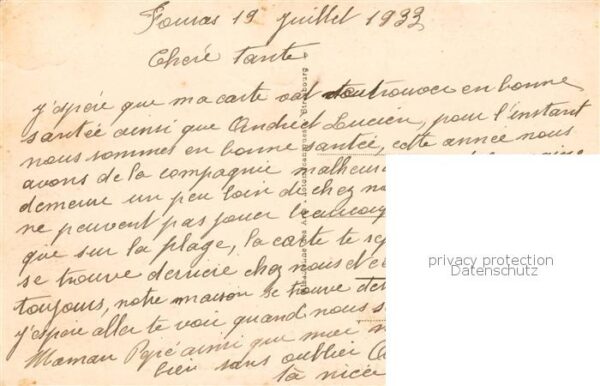 Fouras 19 Juillet 1933
Cheré Tante
j'espére que ma carte vat te trouvoer en bonne
santée ainsi que André et Lucien, pour l'instant
nous sommes en bonne santée, cette année nous
avons de la compagnie malheureu
demeure un peu loin de chez no
ne peuvent pas jouer beaucoup
que sur la plage, la carte te rep
se trouve derriere chez nous et c
toujours, notre maison se trouve der
j'espoie aller te voir quand nous s
Maman Pepé ainsi que moi n
bien sans oublier
ta niéce
privacy protection
Datenschutz